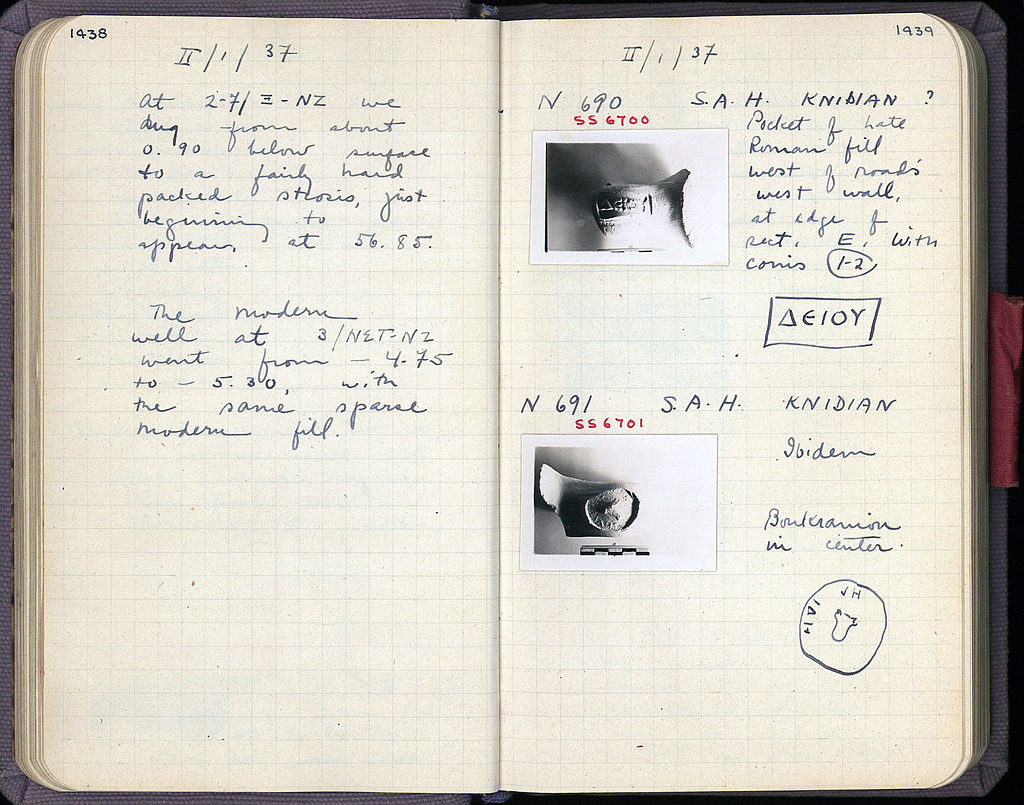 1438
II/1/37
At 2-7/Ξ-NZ we
dug from about
0.90 below surface
to a fairly hard
packed strosis, just
beginning to
appear, at 56.85.
The modern
well at 3/NET-NZ
went from - 4.75
to - 5.30, with
the same sparse
modern fill.
1939
II/1/37
N 690 S.A.H. KNIDIAN ?
SS 6700
Pocket of Late
Roman fill
west of road's
west wall,
at edge of
sect. E, with
coins 1-2
ΔΕΙΟΥ
N 691 S.A.H. KNIDIAN
SS 6701
Ibidem
Boukranion
in center.